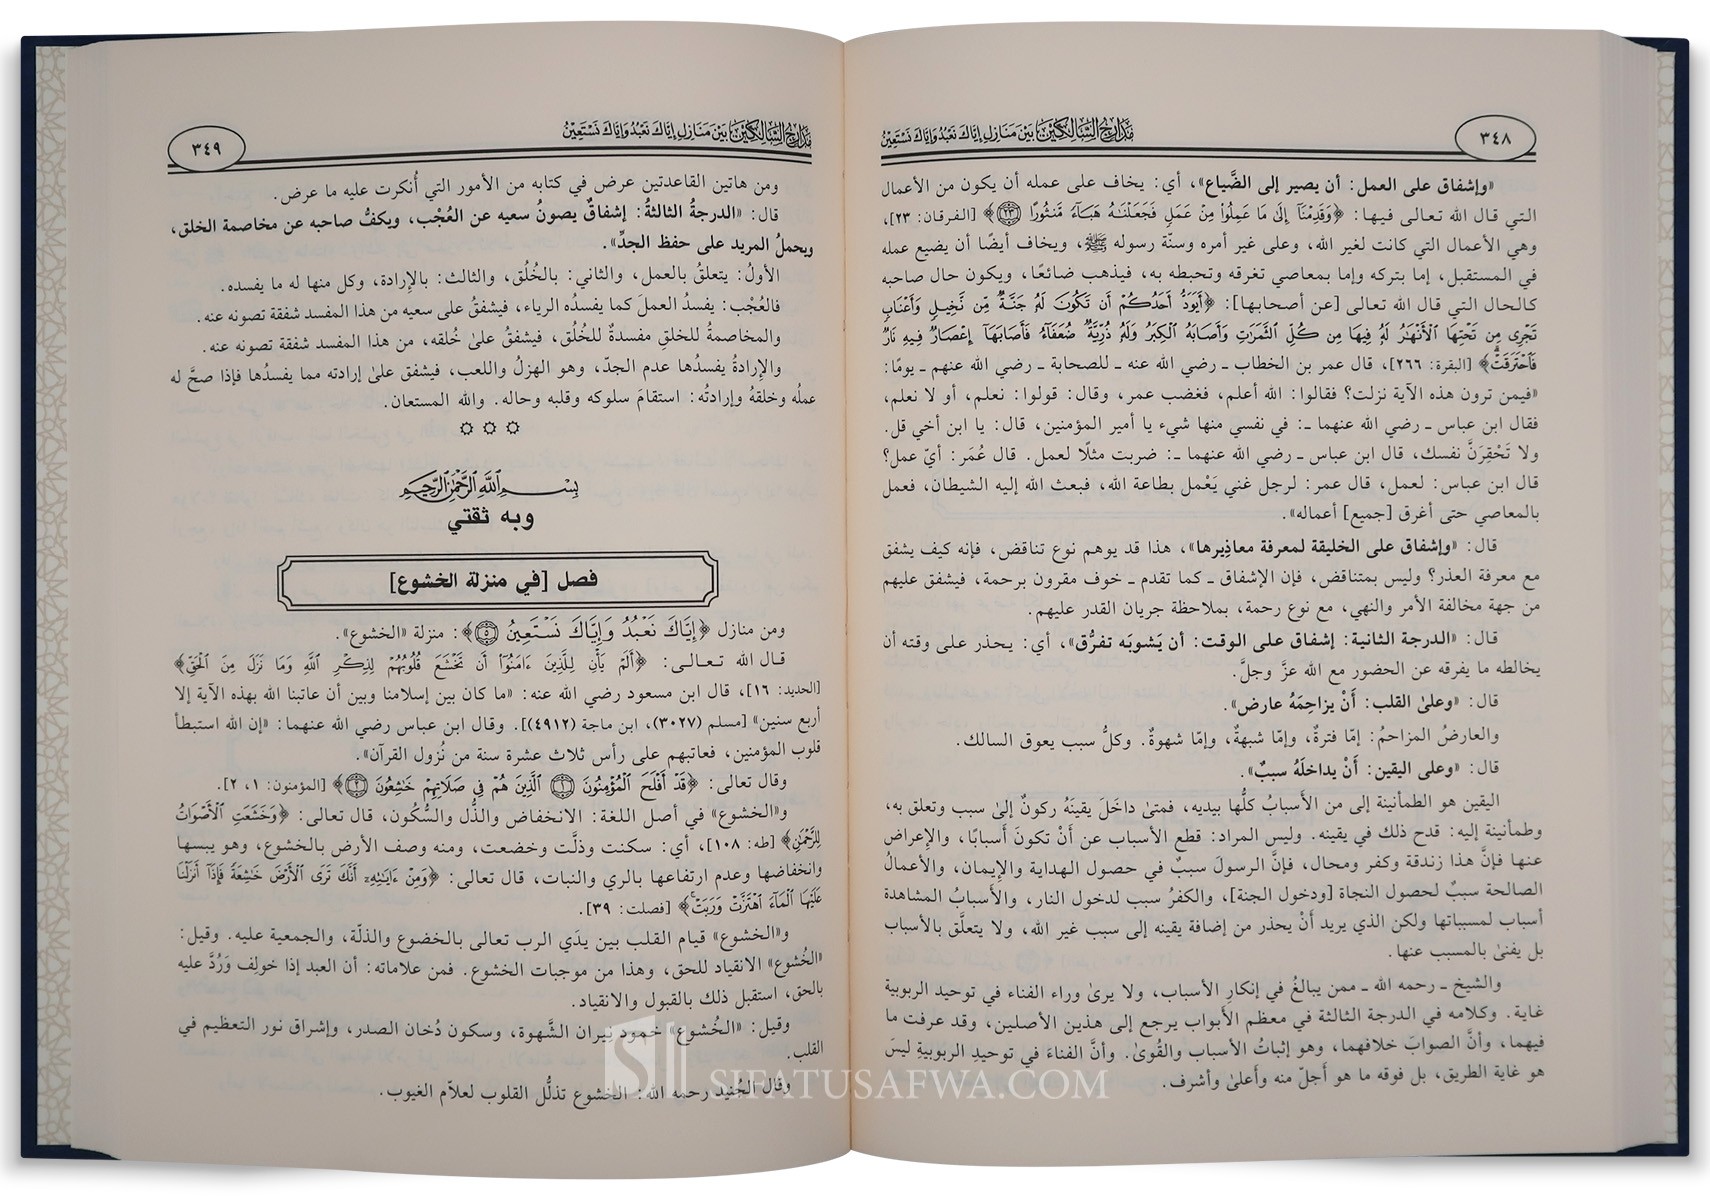 ٣٤٨
مدارج السالكين بين منازل إياك نعبد وإياك نستعين
«وإشفاق على العمل: أن يصير إلى الضَّياع»، أي: يخاف على عمله أن يكون من الأعمال
التي قال الله تعالى فيها: ﴿وَقَدِمْنَآ إِلَىٰ مَا عَمِلُوا۟ مِنْ عَمَلٍ فَجَعَلْنَٰهُ هَبَآءً مَّنثُورًا ٢٣﴾ [الفرقان: ٢٣]،
وهي الأعمال التي كانت لغير الله، وعلى غير أمره وسنّة رسوله ﷺ، ويخاف أيضًا أن يضيع عمله
في المستقبل، إما بتركه وإما بمعاصي تغرقه وتحبطه به، فيذهب ضائعًا، ويكون حال صاحبه
كالحال التي قال الله تعالى [عن أصحابها]: ﴿أَيَوَدُّ أَحَدُكُمْ أَن تَكُونَ لَهُۥ جَنَّةٌ مِّن نَّخِيلٍ وَأَعْنَابٍ
تَجْرِى مِن تَحْتِهَا ٱلْأَنْهَٰرُ لَهُۥ فِيهَا مِن كُلِّ ٱلثَّمَرَٰتِ وَأَصَابَهُ ٱلْكِبَرُ وَلَهُۥ ذُرِّيَّةٌ ضُعَفَآءُ فَأَصَابَهَآ إِعْصَارٌ فِيهِ نَارٌ
فَٱحْتَرَقَتْ﴾ [البقرة: ٢٦٦]، قال عمر بن الخطاب ـ رضي الله عنه ـ للصحابة ـ رضي الله عنهم ـ يومًا:
«فيمن ترون هذه الآية نزلت؟ فقالوا: الله أعلم، فغضب عمر، وقال: قولوا: نعلم، أو لا نعلم،
فقال ابن عباس ـ رضي الله عنهما ـ: في نفسي منها شيء يا أمير المؤمنين، قال: يا ابن أخي قل.
ولا تَحْقِرَنَّ نفسك، قال ابن عباس ـ رضي الله عنهما ـ: ضربت مثلًا لعمل. قال عُمَر: أيّ عمل؟
قال ابن عباس: لعمل، قال عمر: لرجل غني يَعْمل بطاعة الله، فبعث الله إليه الشيطان، فعمل
بالمعاصي حتى أغرق [جميع] أعماله».
قال: «وإشفاق على الخليقة لمعرفة معاذِيرها»، هذا قد يوهم نوع تناقض، فإنه كيف يشفق
مع معرفة العذر؟ وليس بمتناقض، فإن الإشفاق ـ كما تقدم ـ خوف مقرون برحمة، فيشفق عليهم
من جهة مخالفة الأمر والنهي، مع نوع رحمة، بملاحظة جريان القدر عليهم.
قال: «الدرجة الثانية: إشفاق على الوقت: أن يَشوبَه تفرُّق»، أي: يحذر على وقته أن
يخالطه ما يفرقه عن الحضور مع الله عزَّ وجلَّ.
قال: «وعلى القلب: أنْ يزاحِمَهُ عارض».
والعارضُ المزاحمُ: إمّا فترةٌ، وإمّا شبهةٌ، وإمّا شهوةٌ. وكلُّ سبب يعوق السالك.
قال: «وعلى اليقين: أنْ يداخلَهُ سببٌ».
اليقين هو الطمأنينة إلى من الأسبابُ كلُّها بيديه، فمتىٰ داخَلَ يقينَهُ ركونٌ إلىٰ سبب وتعلق به،
وطمأنينة إليه: قدح ذلك في يقينه. وليس المراد: قطع الأسباب عن أنْ تكونَ أسبابًا، والإعراض
عنها فإنَّ هذا زندقة وكفر ومحال، فإنَّ الرسولَ سببٌ في حصول الهداية والإيمان، والأعمالُ
الصالحة سببٌ لحصول النجاة [ودخول الجنة]، والكفرُ سبب لدخول النار، والأسبابُ المشاهدة
أسباب لمسبباتها ولكن الذي يريد أنْ يحذر من إضافة يقينه إلى سبب غير الله، ولا يتعلَّق بالأسباب
بل يفنىٰ بالمسبب عنها.
والشيخ ـ رحمه الله ـ ممن يبالغُ في إنكارِ الأسباب، ولا يرىٰ وراء الفناء في توحيد الربوبية
غاية. وكلامه في الدرجة الثالثة في معظم الأبواب يرجع إلى هذين الأصلين، وقد عرفت ما
فيهما، وأنَّ الصوابَ خلافهما، وهو إثباتُ الأسباب والقُوىٰ. وأنَّ الفناءَ في توحيدِ الربوبيةِ ليسَ
هو غاية الطريق، بل فوقه ما هو أجلّ منه وأعلىٰ وأشرف.
٣٤٩
مدارج السالكين بين منازل إياك نعبد وإياك نستعين
ومن هاتين القاعدتين عرض في كتابه من الأمور التي أُنكرت عليه ما عرض.
قال: «الدرجةُ الثالثةُ: إشفاقٌ يصونُ سعيه عن العُجْب، ويكفُّ صاحبه عن مخاصمة الخلق،
ويحملُ المريد على حفظ الجدِّ».
الأولُ: يتعلقُ بالعمل، والثاني: بالخُلُق، والثالث: بالإرادة، وكل منها له ما يفسده.
فالعُجْب: يفسدُ العملَ كما يفسدُه الرياء، فيشفقُ على سعيه من هذا المفسد شفقة تصونه عنه.
والمخاصمةُ للخلقِ مفسدةٌ للخُلُق، فيشفقُ علىٰ خُلقه، من هذا المفسد شفقة تصونه عنه.
والإرادةُ يفسدُها عدم الجدّ، وهو الهزلُ واللعب، فيشفق علىٰ إرادته مما يفسدُها فإذا صحَّ له
عملُه وخلقهُ وإرادتُه: استقامَ سلوكه وقلبه وحاله. والله المستعان.
بسم الله الرحمن الرحيم
وبه ثقتي
فصل [في منزلة الخشوع]
ومن منازل ﴿إِيَّاكَ نَعْبُدُ وَإِيَّاكَ نَسْتَعِينُ ٥﴾: منزلة «الخشوع».
قال الله تعالى: ﴿أَلَمْ يَأْنِ لِلَّذِينَ ءَامَنُوٓا۟ أَن تَخْشَعَ قُلُوبُهُمْ لِذِكْرِ ٱللَّهِ وَمَا نَزَلَ مِنَ ٱلْحَقِّ﴾
[الحديد: ١٦]، قال ابن مسعود رضي الله عنه: «ما كان بين إسلامنا وبين أن عاتبنا الله بهذه الآية إلا
أربع سنين» [مسلم (٣٠٢٧)، ابن ماجة (٤٩١٢)]. وقال ابن عباس رضي الله عنهما: «إن الله استبطأ
قلوب المؤمنين، فعاتبهم على رأس ثلاث عشرة سنة من نُزول القرآن».
وقال تعالى: ﴿قَدْ أَفْلَحَ ٱلْمُؤْمِنُونَ ١ ٱلَّذِينَ هُمْ فِى صَلَاتِهِمْ خَٰشِعُونَ ٢﴾ [المؤمنون: ١، ٢].
و«الخشوع» في أصل اللغة: الانخفاض والذُّل والسُّكون، قال تعالى: ﴿وَخَشَعَتِ ٱلْأَصْوَاتُ
لِلرَّحْمَٰنِ﴾ [طه: ١٠٨]، أي: سكنت وذلَّت وخضعت، ومنه وصف الأرض بالخشوع، وهو يبسها
وانخفاضها وعدم ارتفاعها بالري والنبات، قال تعالى: ﴿وَمِنْ ءَايَٰتِهِۦٓ أَنَّكَ تَرَى ٱلْأَرْضَ خَٰشِعَةً فَإِذَآ أَنزَلْنَا
عَلَيْهَا ٱلْمَآءَ ٱهْتَزَّتْ وَرَبَتْ﴾ [فصلت: ٣٩].
و«الخشوع» قيام القلب بين يدَي الرب تعالى بالخضوع والذلّة، والجمعية عليه. وقيل:
«الخُشوع» الانقياد للحق، وهذا من موجبات الخشوع. فمن علاماته: أن العبد إذا خولِف وَرُدَّ عليه
بالحق، استقبل ذلك بالقبول والانقياد.
وقيل: «الخُشوع» خمود نيران الشَّهوة، وسكون دُخان الصدر، وإشراق نور التعظيم في
القلب.
وقال الجُنيد رحمه الله: الخشوع تذلُّل القلوب لعلاّم الغيوب.
SIFATUSAFWA.COM